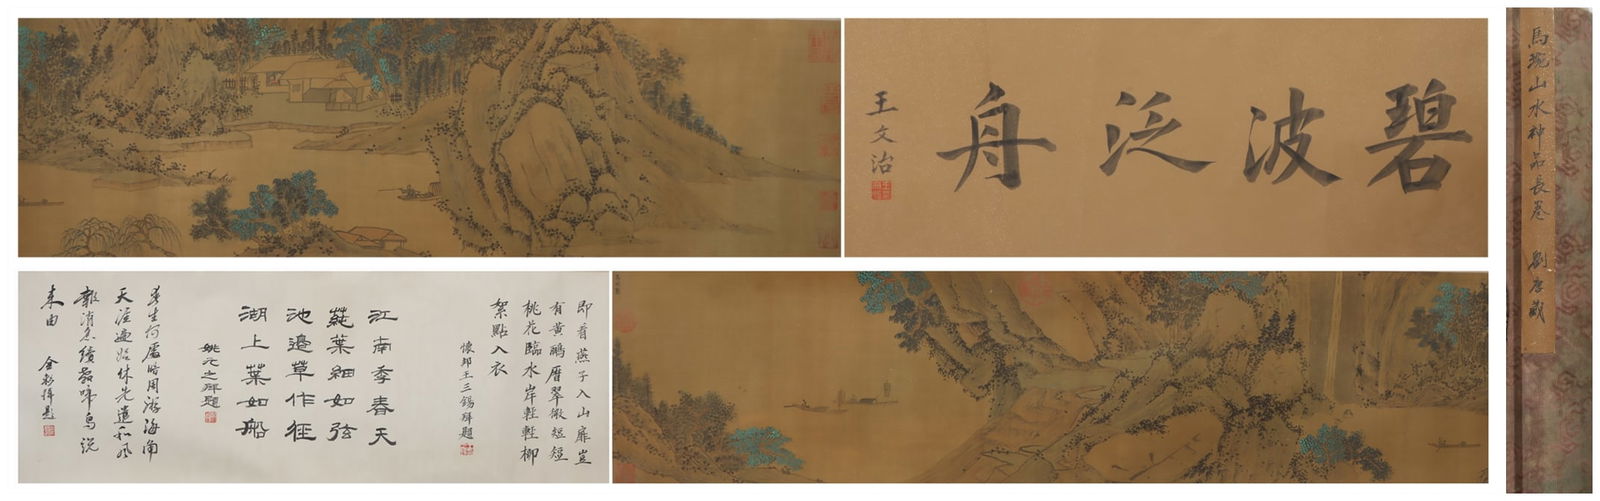 碧波泛舟
王文治
馬琬山水神品長卷
劉彥藏
即看燕子入山扉豈
有黃鸝曆翠微短短
桃花臨水岸輕輕柳
絮點入衣
懷邦王三錫拜題
江南季春天
蓴葉細如弦
池邊草作徑
湖上葉如船
姚元之拜題
春生何處暗周游海角
天涯遍始休先遣和風
報消息續教啼鳥說
來由